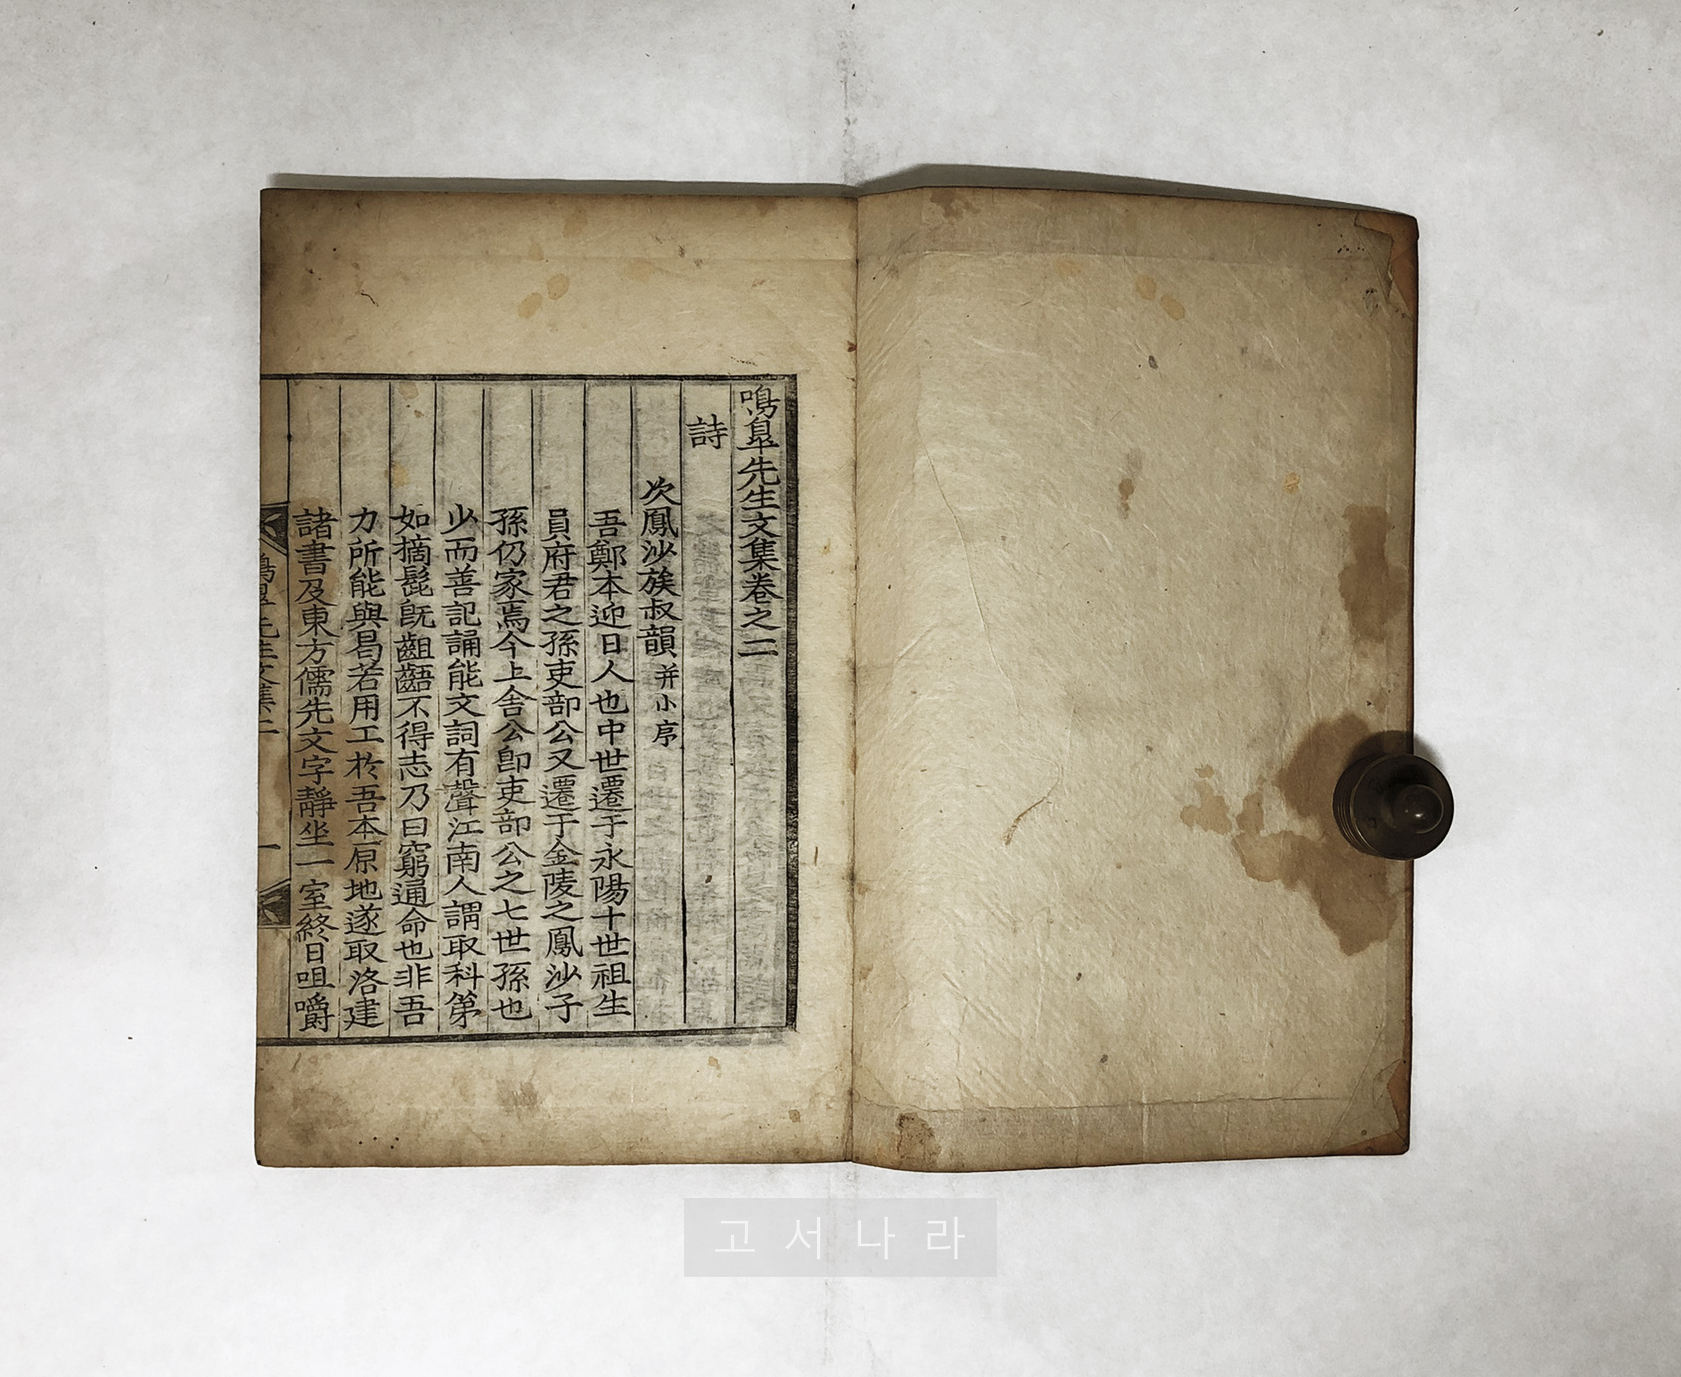 鳴皐先生文集卷之二
詩
次鳳沙族叔韻 并小序
吾鄭本迎日人也中世遷于永陽十世祖生
員府君之孫吏部公又遷于金陵之鳳沙子
孫仍家焉今上舍公卽吏部公之七世孫也
少而善記誦能文詞有聲江南人謂取科第
如摘髭旣齟齬不得志乃曰窮通命也非吾
力所能與曷若用工於吾本原地遂取洛建
諸書及東方儒先文字靜坐一室終日咀嚼
鳴皐先生文集二
一
고서나라